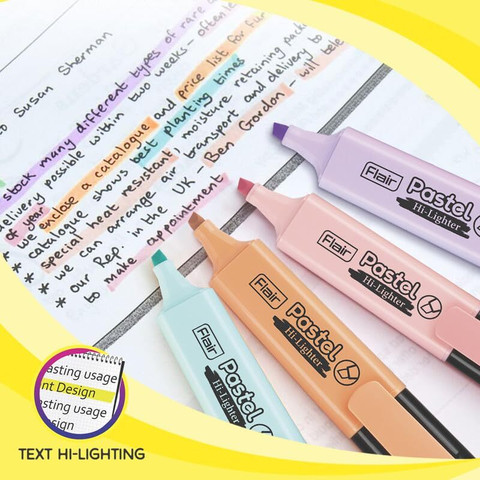 Susan Sherman
stock many different types of rare
delivery possible within two weeks - often
we enclose a catalogue and price list for
* catalogue shows best planting times
special heat resistant moisture retaining
* we can arrange air transport and delivery to
* our Rep. in the UK - Ben Gordon - will
to make appointment
Flair
Pastel
Hi-Lighter
Flair
Pastel
Hi-Lighter
Flair
Pastel
Hi-Lighter
Flair
Pastel
Hi-Lighter
asting usage
nt Design
sting usage
sign
TEXT HI-LIGHTING